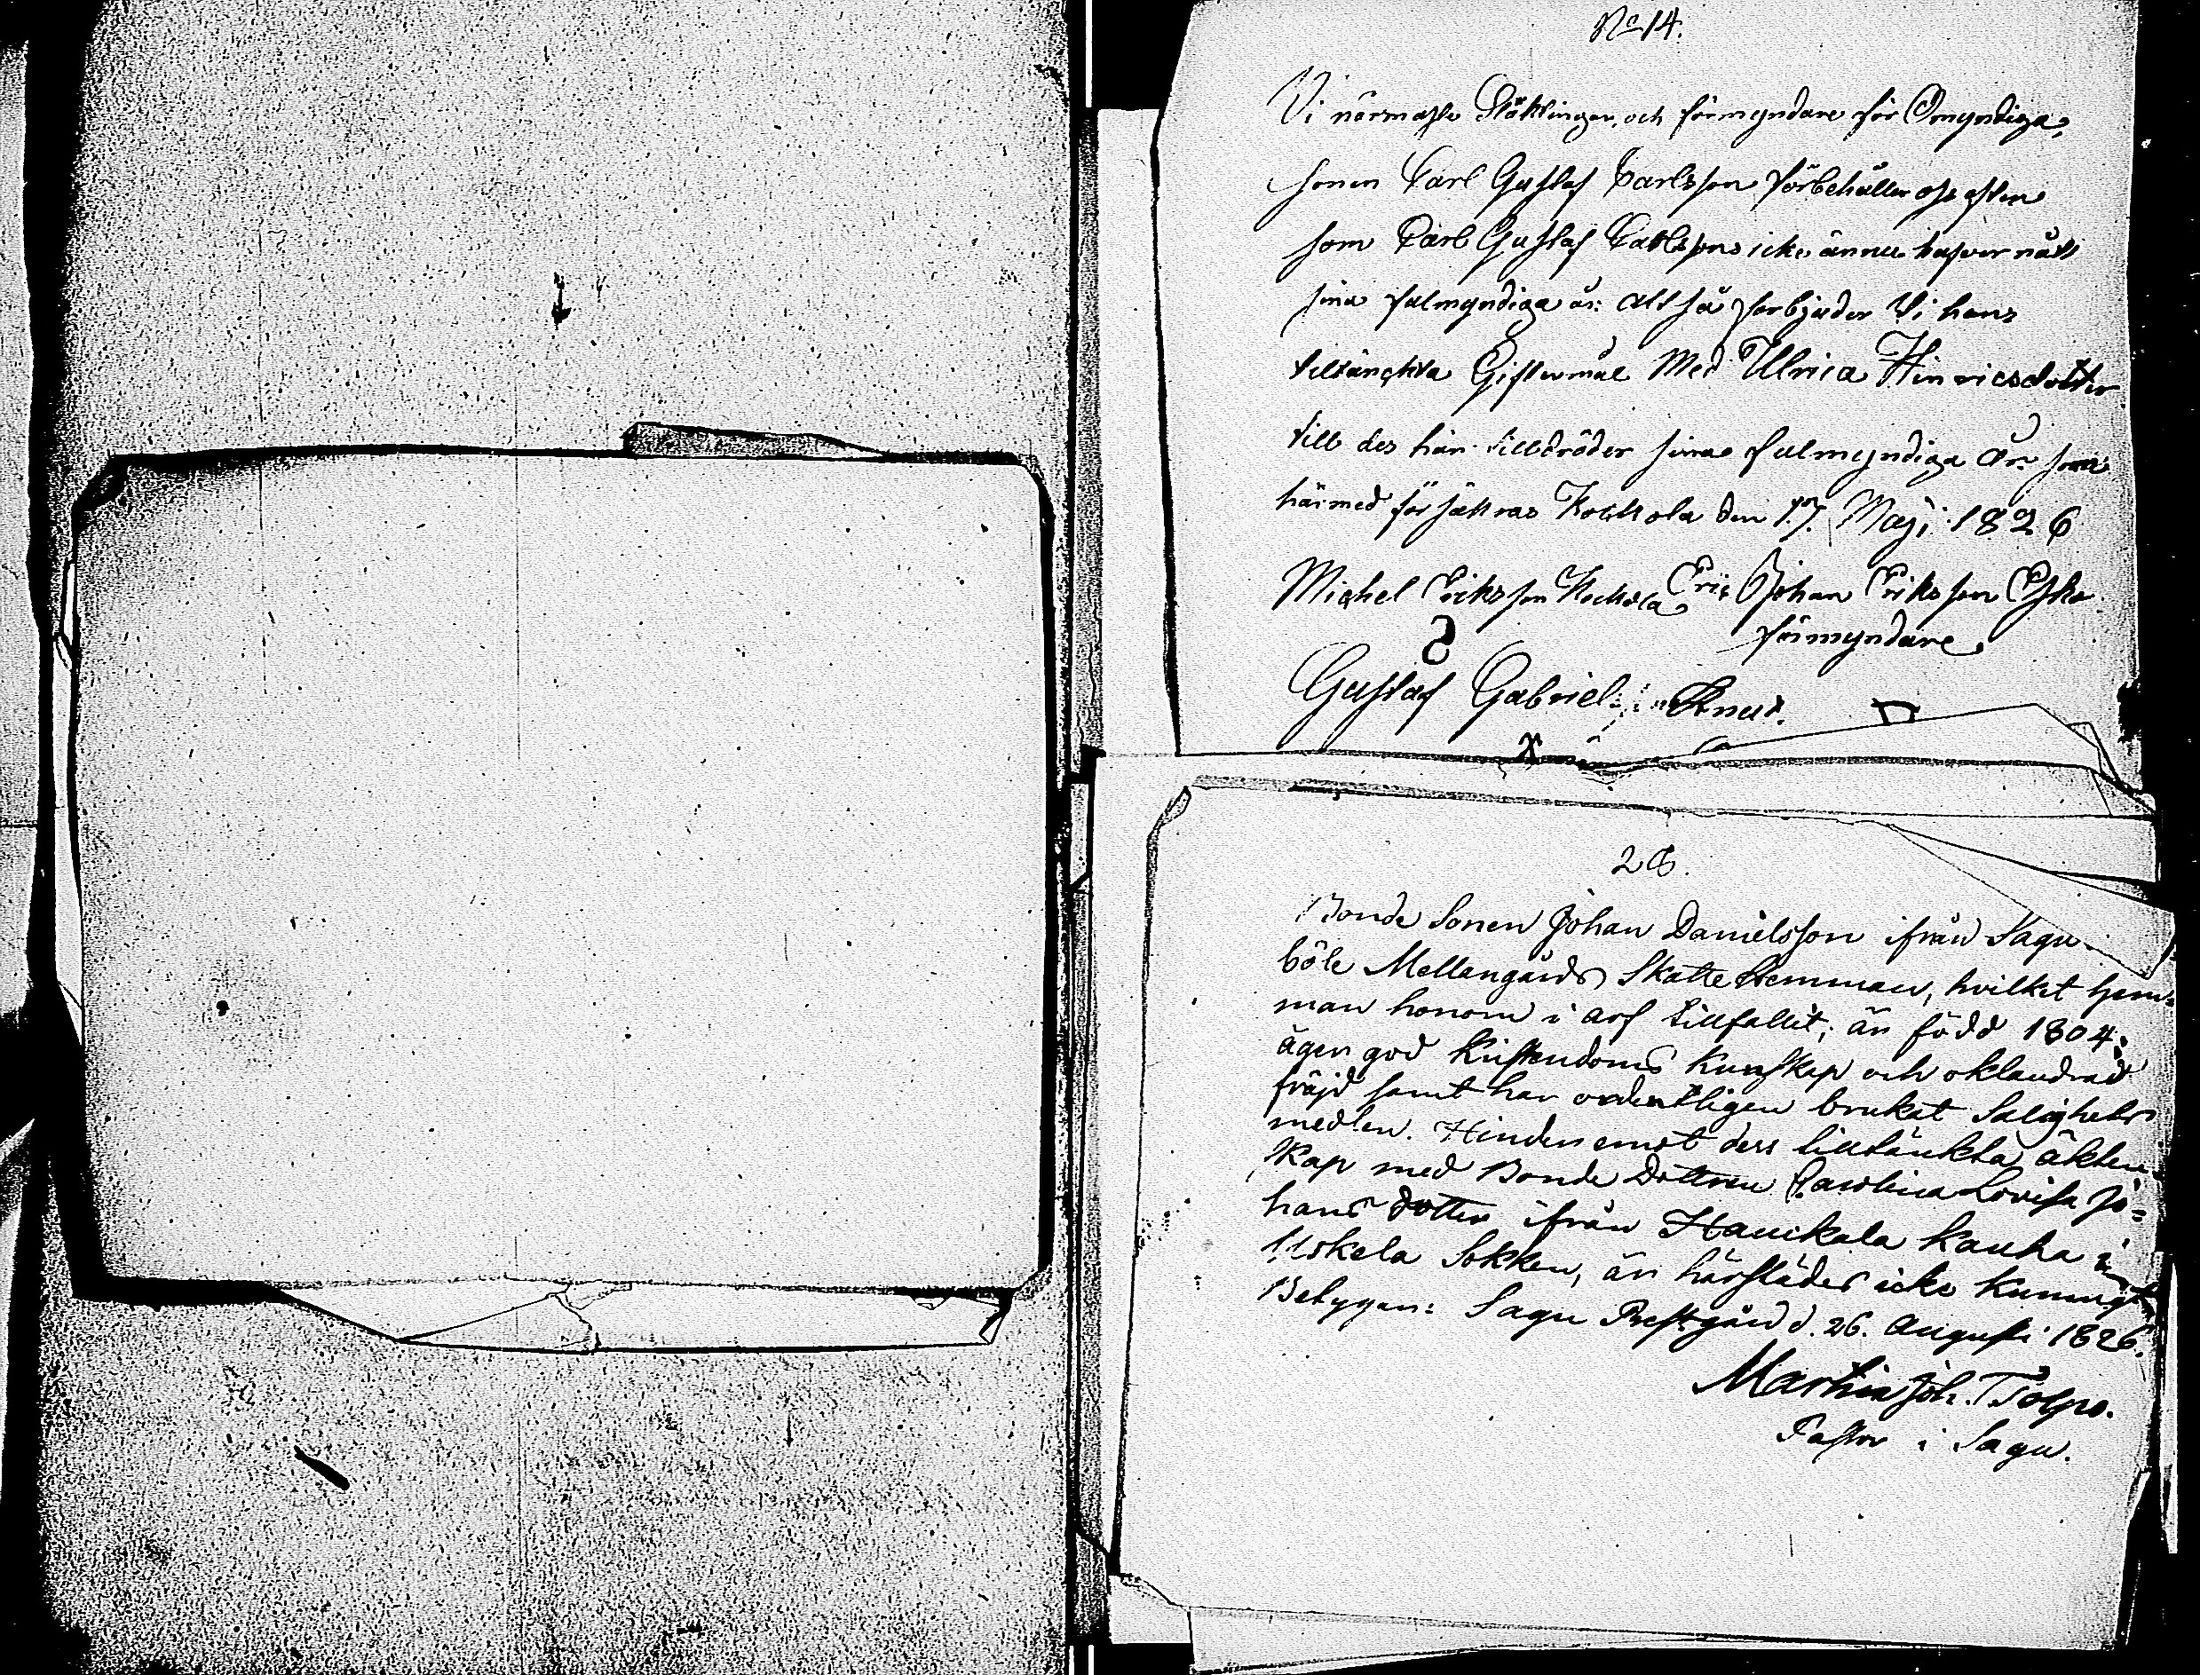 No 14.
Vi närmaste Släktingar, och förmyndare för Omyndiga
sonen Carl Gustaf Carlsson förbehåller oss efter
som Carl Gustaf Carlsson icke ännu hafver nått
sina fulmyndiga år: alt så förbjuder Vi hans
tiltänckta Giftermål Med Ulrica Hinricsdotter
till des han tillträder sinna fulmyndiga År. som
härmed försäkras Kockola den 17. Maji 1826
Michel Eriksson Kockola Eric Johan Eriksson Esko
förmyndare
Gustaf Gabriel Knut.
26.
Bonde Sonen Johan Danielsson ifrån Sagu-
böle Mellangårds Skatte hemman, hvilket hem=
man honom i arf tillfallit; är född 1804;
äger god Kristendoms Kunskap och oklandrad
fräjd samt har ordentligen brukat Salighets
medlen. Hinder emot dess tilltänkta äkten-
skap med Bonde Dottren Carolina Lovisa Jo=
hans dotter ifrån Haukala Kauha i
Uskela Sokken, är härstädes icke kunnigt
Betygar: Sagu Prestgård d. 26. Augusti 1826.
Martin Joh. Tolpo.
Pastor i Sagu.